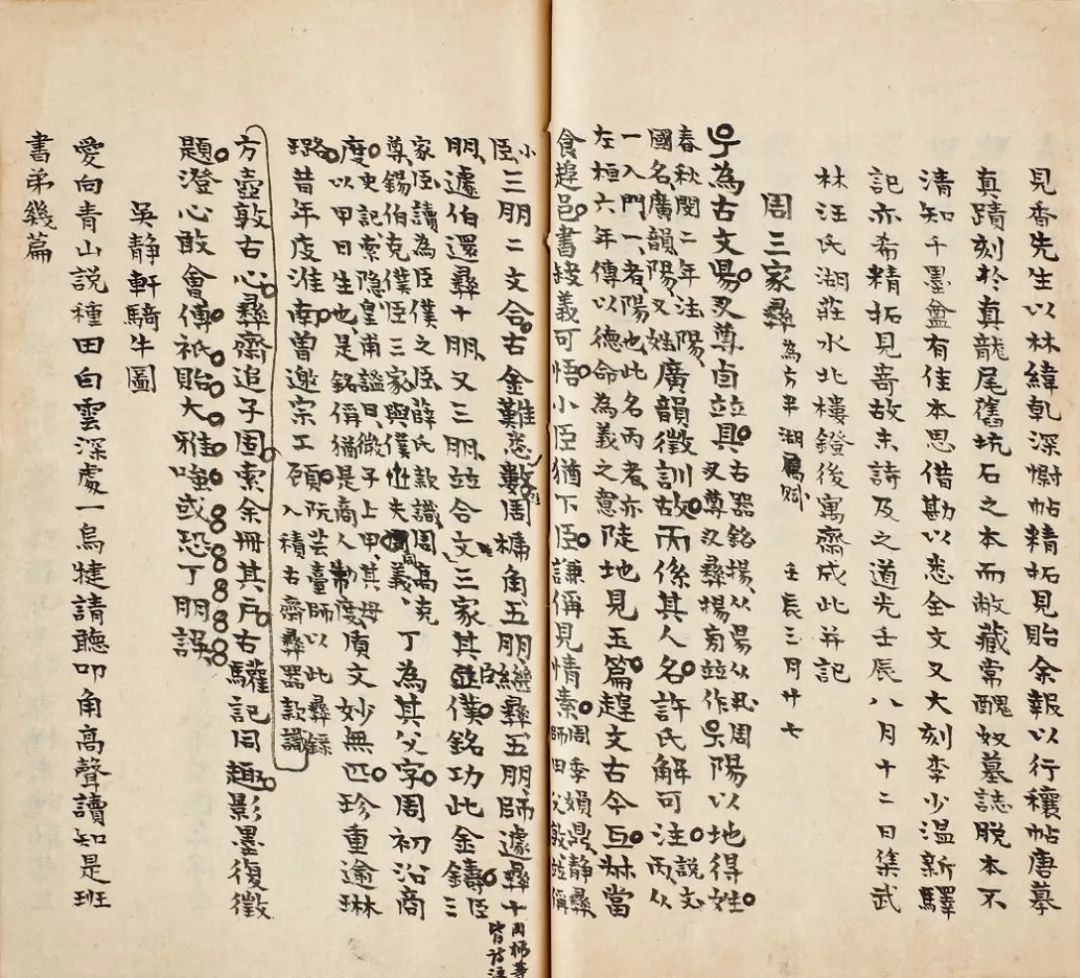 見香先生以林緯乹深慰帖精拓見貽余報以行穰帖唐摹
真蹟刻於真龍尾舊坑石之本而敝藏常醜奴墓誌脫本不
清知千墨盦有佳本思借勘以悉全文又大刻李少溫新驛
記亦希精拓見寄故末詩及之道光壬辰八月十二日集武
林汪氏湖莊水北樓鐙後寓齋成此并記
周三家彝 為方 湖 賦 壬辰三月廿七
為古文昜又尊卣竝具古器銘揚从昜从丮周又尊又彝揚 竝作 陽以地得姓
春秋閔二年注陽國名廣韻陽又姓廣韻徵訓故而係其人名許氏解可注說文丙从
一入門一者陽也此名丙者亦左桓六年傳以德命為義之意陡地見玉篇趩文古今 當
食趩邑書接義可悟小臣猶下臣謙偁見情素周季娟鼎靜彝師田父敦竝偁
小臣三朋二文合古金難悉數周 角五朋 彝五朋師遽彝十
朋遽伯還彝十朋又三朋竝合文三家其竝僕銘功此金鑄三臣
家臣讀為臣僕之臣薛氏款識周高克尊錫伯克僕臣三家與僕 夫同義丁為其父字周初沿商
度史記索隱皇甫謐曰微子上甲其母以甲日生也是銘偁猶是商人制度 文妙無匹珍重逾琳
璐昔年度淮南曾邀宗工顧阮芸臺師以此彝錄入積古齋彝器款識
方壺敦古心彝齋追子固索余冊其戶右驩記同趣影墨復徵
題澄心敢會傅祇貽大雅嗤或恐丁朋誤
吳靜軒騎牛圖
愛向青山說種田白雲深處一烏犍請聽叩角高聲讀知是班
書弟幾篇